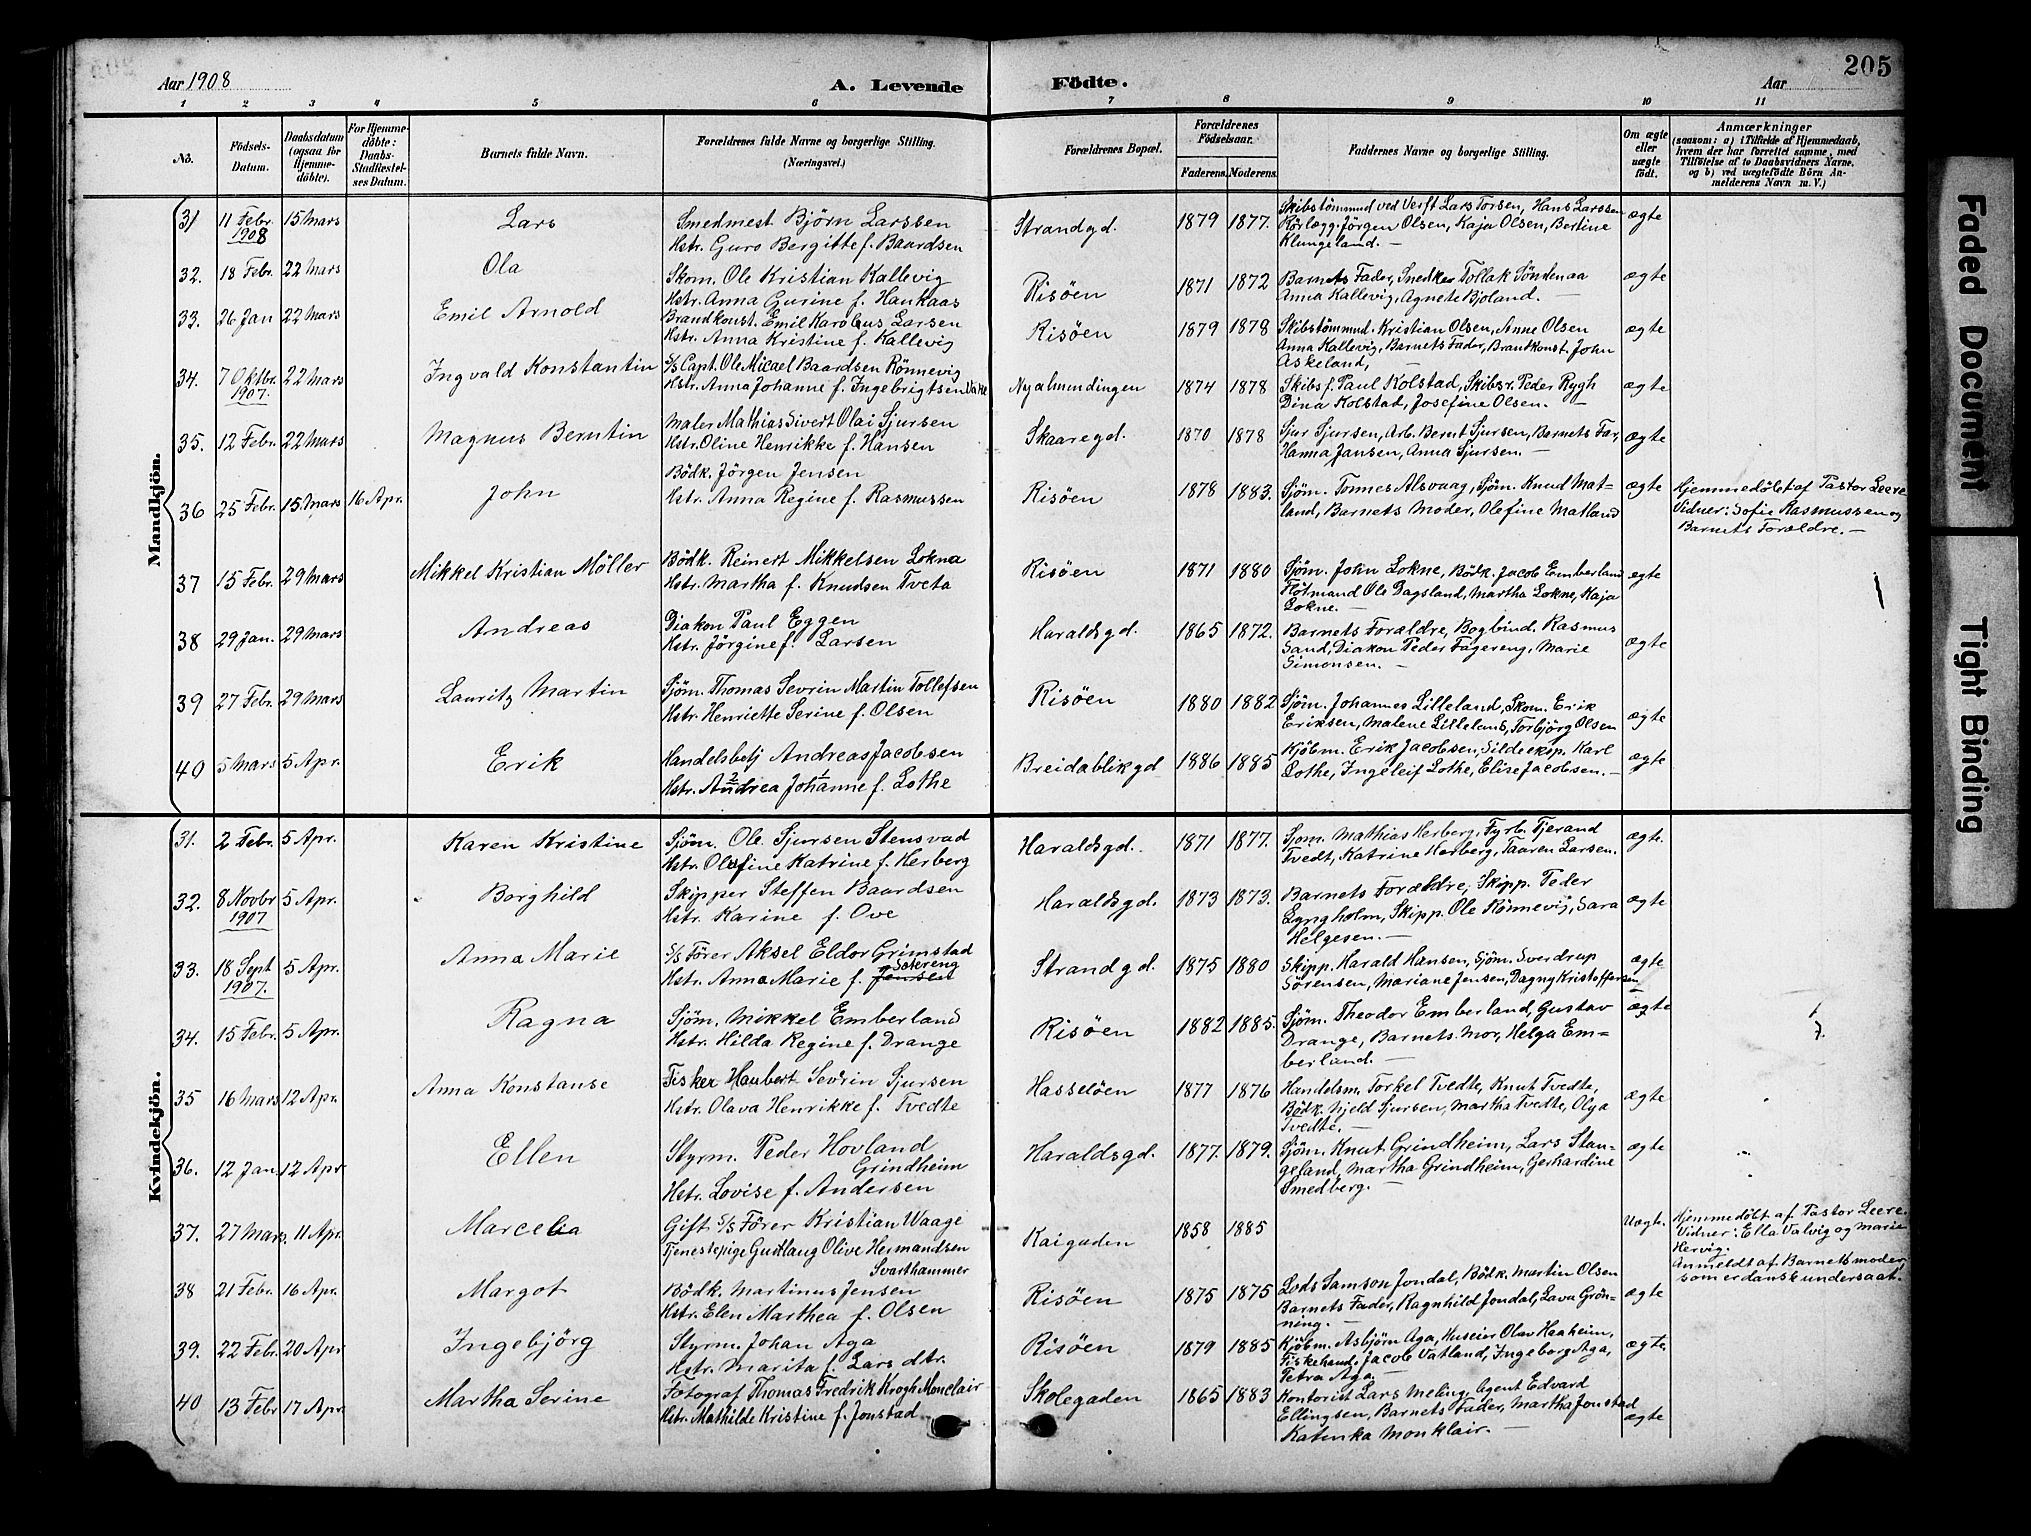 205
Aar 1908
A. Levende
Födte.
Aar
1 2 3 4 5 6 7 8 9 10 11
No.
Födsels-Datum.
Daabsdatum (ogsaa for Hjemme-döbte).
For Hjemme-döbte: Daabs-Stadfæstel-ses Datum.
Barnets fulde Navn.
Forældrenes fulde Navne og borgerlige Stilling. (Næringsvei.)
Forældrenes Bopæl.
Forældrenes Födselsaar.
Faderens. Moderens.
Faddernes Navne og borgerlige Stilling.
Om ægte eller uægte födt.
Anmærkninger
(saasom: a) i Tilfælde af Hjemmedaab, hvem der har forrettet samme, med Tilföielse af to Daabsvidners Navne, og b) ved uægtefödte Börn Anmelderens Navn m. V.)
Mandkjön.
31 11 Febr. 1908 15 Mars Lars
Smedmest Bjørn Larssen
Hstr. Guro Bergitte f. Baardsen
Strandgd. 1879 1877.
Skibstömmnd ved Verft Lars Torsen, Hans Larssen
Rörlægg. Jörgen Olsen, Kaja Olsen, Bertine
Klungeland. —
ægte
32. 18 Febr. 22 Mars Ola
Skom. Ole Kristian Kallevig
Hstr. Anna Gurine f. Haukaas
Risöen 1871 1872
Barnets Fader, Snedker Tollak Söndenaa
Anna Kallevig, Agnete Bjoland. —
ægte
33. 26 Jan 22 Mars Emil Arnold
Brandkonst. Emil Karolius Larsen
Hstr. Anna Kristine f. Kallevig
Risöen 1879 1878
Skibstömmnd. Kristian Olsen, Anne Olsen
Anna Kallevig, Barnets Fader, Brandkonst. John
Askeland,
ægte
34. 7 Oktbr. 1907. 22 Mars Ingvald Konstantin
S/S Capt. Ole Micael Baardsen Rönnevig
Hstr. Anna Johanne f. Ingebrigtsen
Nyalmundingen 1874 1878
Skibsf. Paul Kolstad, Skibsr. Peder Rygh
Dina Kolstad, Josefine Olsen. —
ægte
35. 12 Febr. 22 Mars Magnus Berntin
Maler Mathias Sivert Olai Sjursen
Hstr. Oline Henrikke f. Hansen
Skaaregd. 1870 1878
Sjur Sjursen, Arb. Bernt Sjursen, Barnets Far,
Hanna Jansen, Anna Sjursen. —
ægte
36 25 Febr. 15 Mars 16 Apr. John
Bödk. Jörgen Jensen
Hstr. Anna Regine f. Rasmussen
Risöen 1878 1883.
Sjöm. Tonnes Alsvaag, Sjöm. Knud Mat-
land, Barnets Moder, Olefine Matland
ægte
Hjemmedöbt af Pastor Leere
Vidner: Sofie Rasmussen og
Barnets Forældre. —
37 15 Febr. 29 Mars Mikkel Kristian Möller
Bödk. Reinert Mikkelsen Lokna
Hstr. Martha f. Knudsen Tveta
Risöen 1871 1880
Sjöm. John Lokne, Bödk. Jacob Emberland
Flötmand Ole Dagsland, Martha Lokne, Kaja
Lokne. —
ægte
38 29 Jan. 29 Mars Andreas
Diakon Paul Eggen
Hstr. Jörgine f. Larsen
Haraldsgd. 1865 1872.
Barnets Forældre, Bogbind. Rasmus
Sand, Diakon Peder Fagereng, Marie
Simonsen. —
ægte
39 27 Febr. 29 Mars Lauritz Martin
Sjöm. Thomas Sevrin Martin Tollefsen
Hstr. Henriette Serine f. Olsen
Risöen 1880 1882
Sjöm. Johannes Lilleland, Skom. Erik
Eriksen, Malene Lilleland, Torbjörg Olsen
ægte
40 5 Mars 5 Apr. Erik
Handelsbetj Andreas Jacobsen
Hstr. Andrea Johanne f. Lothe
Breidablikgd 1886 1885
Kjöbm. Erik Jacobsen, Sildeeksp. Karl
Lothe, Ingeleif Lothe, Elise Jacobsen. —
ægte
Kvindekjön.
31. 2 Febr. 5 Apr. Karen Kristine
Sjöm. Ole Sjursen Stensvad
Hstr. Olefine Katrine f. Herberg
Haraldsgd. 1871 1877.
Sjom. Mathias Herberg, Fyrb. Tjerand
Tvedt, Katrine Herberg, Taaren Larsen.
ægte.
32. 8 Novbr 1907 5 Apr. Borghild
Skipper Steffen Baardsen
Hstr. Karine f. Ove
Haraldsgd. 1873 1873.
Barnets Forældre, Skipp. Peder
Lyngholm, Skipp. Ole Rönnevig, Sara
Helgesen. —
ægte
33. 18 Sept 1907. 5 Apr. Anna Marie
S/S Förer Aksel Eldor Grimstad
Hstr. Anna Marie f. Jensen
Strandgd. 1875 1880
Skipp. Harald Hansen, Sjöm. Sverdrup
Sörensen, Mariane Jensen, Dagny Kristoffersen
ægte
34. 15 Febr. 5 Apr. Ragna
Sjöm. Mikkel Emberland
Hstr. Hilda Regine f. Drange
Risöen 1882 1885.
Sjöm. Theodor Emberland, Gustav
Drange, Barnets Mor, Helga Em-
berland. —
ægte
35 16 Mars 12 Apr. Anna Konstanse
Fisker Haubert Sevrin Sjursen
Hstr. Olava Henrikke f. Tvedte
Hasselöen 1877 1876
Handelsm. Torkel Tvedte, Knut Tvedte,
Bödk. Njeld Sjursen, Martha Tvedte, Olga
Tvedte. —
ægte
36. 12 Jan. 12 Apr. Ellen
Styrm. Peder Hovland
Grindheim
Hstr. Lovise f. Andersen
Haraldsgd. 1877. 1879.
Sjöm. Knut Grindheim, Lars Stan-
geland, Martha Grindheim, Gerhardine
Smedberg. —
ægte
37. 27 Mars 11 Apr. Marcelia
Gift S/S Förer Kristian Waage
Tjenestepige Gudlaug Olive Hermandsen
Svarthammer
Kaigaden 1858 1885
Uægte.
Hjemmedöbt af Pastor Leere.
Vidner: Ella Valvig og Marie
Hervig.
Anmeldt af Barnets moder,
som er dansk undersaat.
38 21 Febr. 16 Apr. Margot
Bödk. Martinus Jensen
Hstr. Elen Marthea f. Olsen
Risöen 1875 1875
Lods Samson Jondal, Bödk. Martin Olsen
Barnets Fader, Ragnhild Jondal, Lava Grön-
ning. —
ægte
39. 22 Febr. 20 Apr Ingebjörg
Styrm. Johan Aga
Hstr. Marita f. Lars dtr.
Risöen 1879 1885
Kjöbm. Asbjörn Aga, Huseier Olav Haaheim,
Fiskehand. Jacob Vatland, Ingeborg Aga,
Petra Aga. —
ægte.
40 13 Febr 17 Apr. Martha Serine
Fotograf Thomas Fredrik Krogh Monclair
Hstr. Mathilde Kristine f. Jonstad
Skolegaden 1865 1883
Kontorist Lars Meling, Agent Edvard
Ellingsen, Barnets Fader, Martha Jonstad
Katinka Monklair. —
ægte
Faded Document
Tight Binding